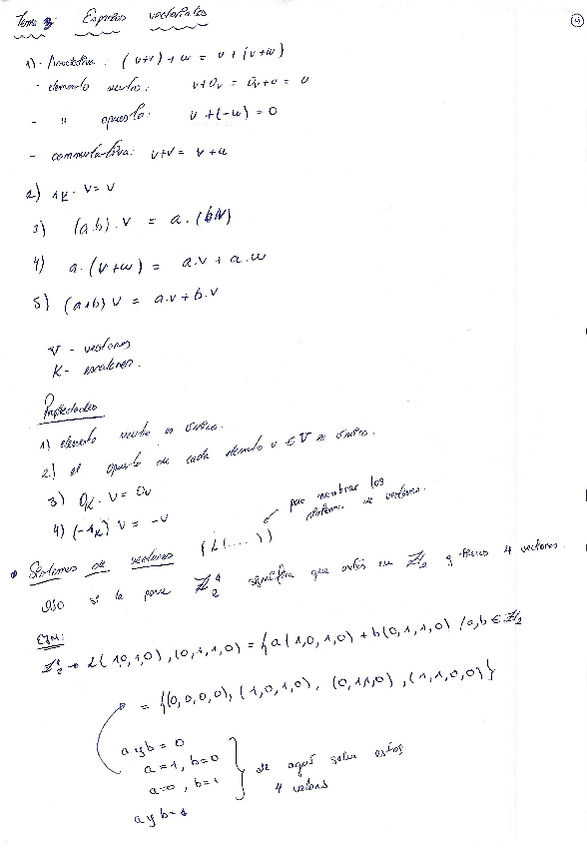 Tema 3 Espacios vectoriales
4
1) - Asociativa: (u+v) + w = u + (v+w)
- elemento neutro: v+0v = 0v+v = v
- " opuesto: v + (-v) = 0
- conmutativa: u+v = v+u
2) 1K · v = v
3) (a.b) . v = a . (b.v)
4) a . (v+w) = a.v + a.w
5) (a+b) v = a.v + b.v
V - vectores
K - escalares.
Propiedades
1) elemento neutro es único.
2) el opuesto de cada elemento v ∈ V es único.
3) 0K . v = 0v
4) (-1K) v = -v
para nombrar los
sistemas de vectores.
• Sistemas de vectores (L(....))
si te pone ℤ₂⁴ significa que estás en ℤ₂ y tienes 4 vectores.
EJM:
ℤ₂⁴ → L(1,0,1,0), (0,1,1,0) = {a(1,0,1,0) + b(0,1,1,0) / a,b ∈ ℤ₂
= {(0,0,0,0), (1,0,1,0), (0,1,1,0), (1,1,0,0)}
a y b = 0
a=1, b=0
a=0, b=1
a y b = 1
de aquí salen estos
4 vectores